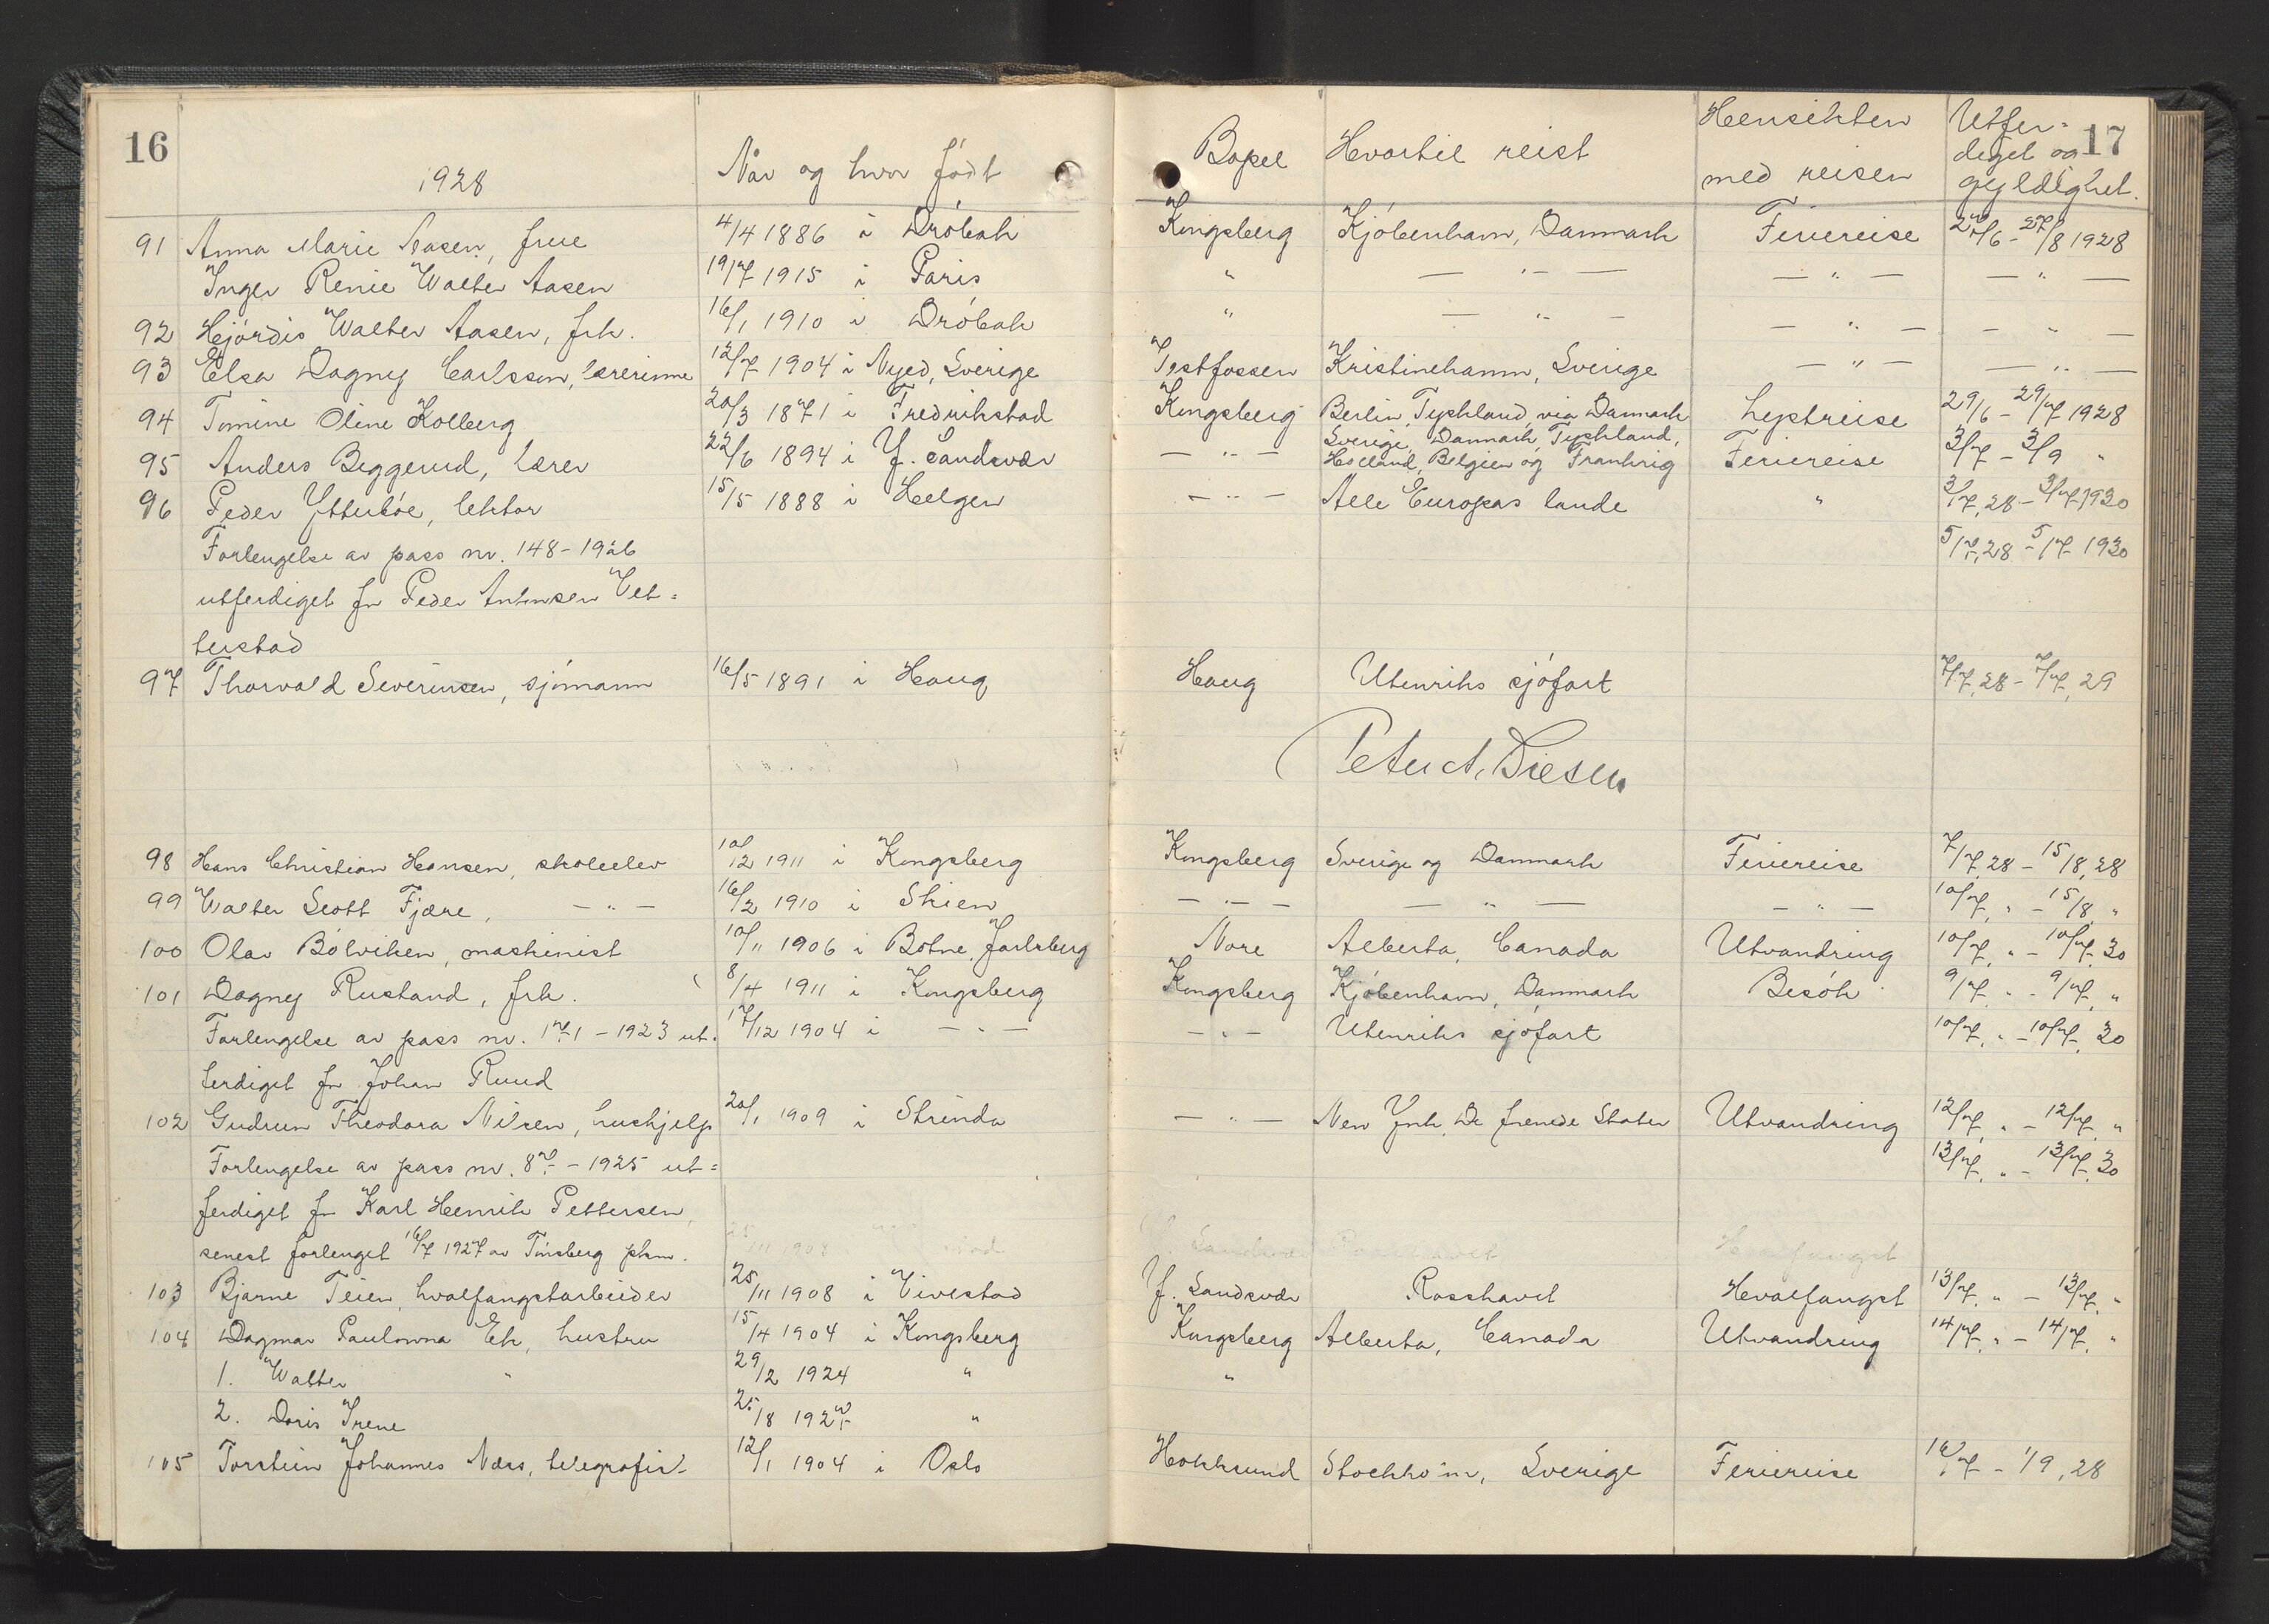 16
1928 Når og hvor født
Bopel Hvortil reist Hensikten med reisen Utfer-diget og gyldighet. 17
91 Anna Marie Aasen, frue 4/4 1886 i Drøbak Kongsberg Kjøbenhavn, Danmark Feriereise 27/6 - 27/8 1928
Inger Renie Walter Aasen 19/7 1915 i Paris " — " — — " — — " —
92 Hjørdis Walter Aasen, frk. 16/1 1910 i Drøbak " — " — — " — — " —
93 Elsa Dagny Carlsson, lærerinne 12/7 1904 i Nyed, Sverige Vestfossen Kristinehamn, Sverige — " — — " —
94 Tomine Oline Kolberg 20/3 1871 i Fredrikstad Kongsberg Berlin, Tyskland via Danmark Lystreise 29/6 - 29/7 1928
95 Anders Beggerud, lærer 22/6 1894 i Y. Sandsvær — " — Sverige, Danmark, Tyskland,
Holland, Belgien og Frankrig Feriereise 3/7 - 3/9 "
96 Peder Ytterbøe, lektor 15/5 1888 i Helgen — " — Alle Europas lande " 3/7, 28 - 3/7 1930
Forlengelse av pass nr. 148 - 1926 5/7, 28 - 5/7 1930
utferdiget for Peder Antonsen Vet=
terstad
97 Thorvald Severinsen, sjømann 16/5 1891 i Haug Haug Utenriks sjøfart 7/7, 28 - 7/7, 29
Peter A. Diesen
98 Hans Christian Hansen, skoleelev 10/12 1911 i Kongsberg Kongsberg Sverige og Danmark Feriereise 7/7, 28 - 15/8, 28
99 Walter Scott Fjære, — " — 16/2 1910 i Skien — " — — " — — " — 10/7, " - 15/8, "
100 Olav Bølviken, maskinist 10/11 1906 i Botne, Jarlsberg Nore Alberta, Canada Utvandring 10/7, " - 10/7, 30
101 Dagny Rustand, frk. 8/4 1911 i Kongsberg Kongsberg Kjøbenhavn, Danmark Besøk 9/7, " - 9/7, "
Forlengelse av pass nr. 171 - 1923 ut- 17/12 1904 i — " — — " — Utenriks sjøfart 10/7, " - 10/7, 30
ferdiget for Johan Ruud
102 Gudrun Theodora Nilsen, hushjelp 20/1 1909 i Strinda — " — New York, De forenede Stater Utvandring 12/7, " - 12/7, "
Forlengelse av pass nr. 87 - 1925 ut= 13/7, " - 13/7, 30
ferdiget for Karl Henrik Pettersen,
senest forlenget 16/7 1927 av Tønsberg pkm.
103 Bjarne Teien, hvalfangstarbeider 25/11 1908 i Vivestad Y. Sandsvær Rosshavet Hvalfangst 13/7, " - 13/7, "
104 Dagmar Paulowna Ek, hustru 15/4 1904 i Kongsberg Kongsberg Alberta, Canada Utvandring 14/7, " - 14/7, "
1. Walter " 29/2 1924 " "
2. Doris Irene 25/8 1925 "
105 Torstein Johannes Næss, telegrafist 12/1 1904 i Oslo Hokksund Stockholm, Sverige Feriereise 16/7 - 1/9, 28